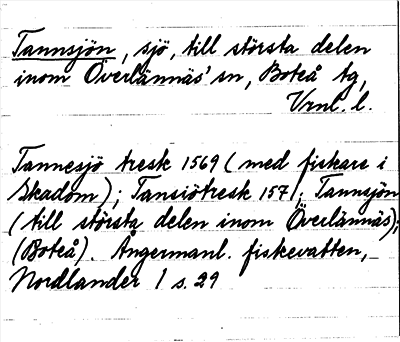 Tannsjön, sjö, till största delen
inom Överlännäs' sn, Boteå tg,
Vrnl. l.
Tannesjö tresk 1569 (med fiskare i
Skadom); Tansiötresk 1571; Tannsjön
(till största delen inom Överlännäs);
(Boteå). Ångermanl. fiskevatten,
Nordlander 1 s. 29